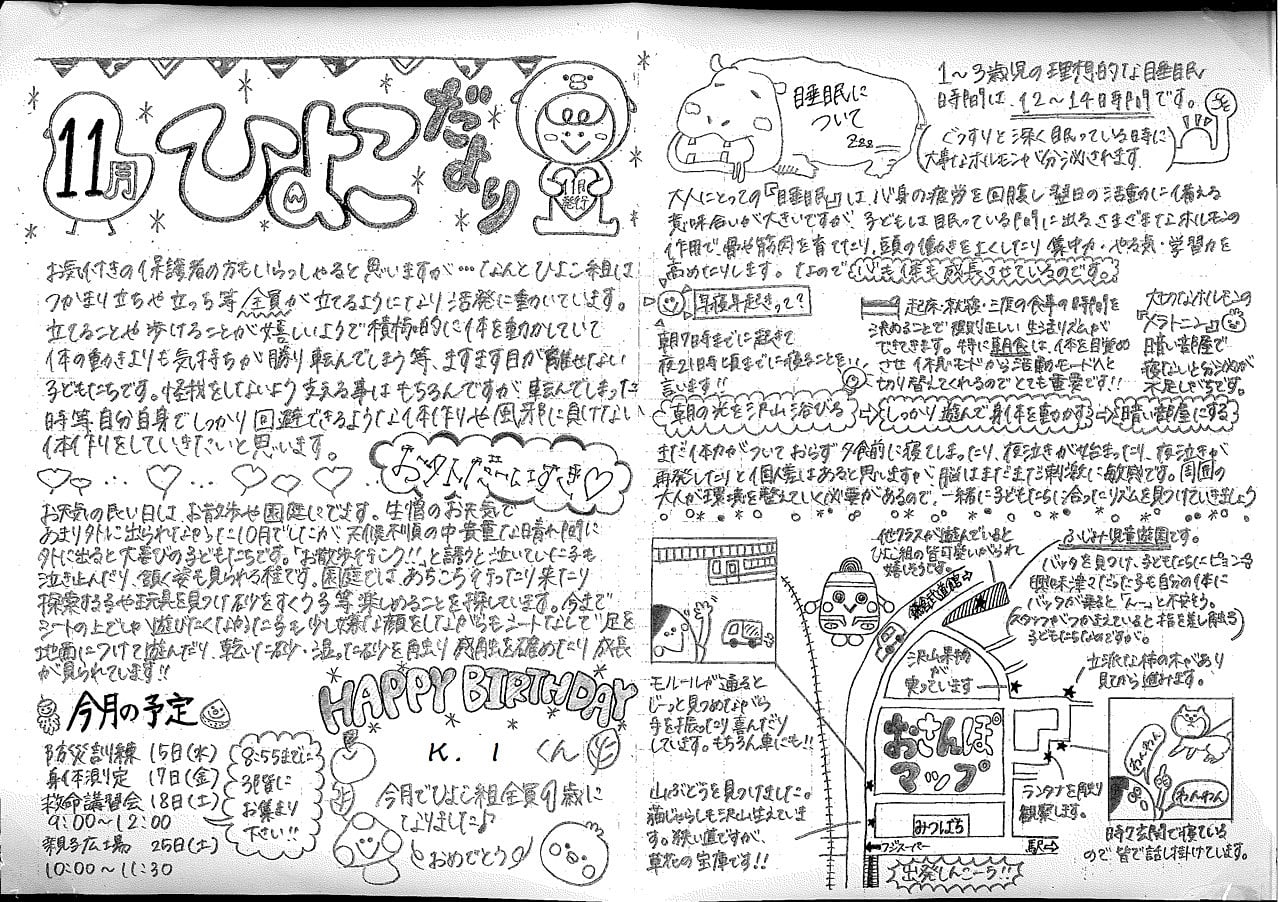 11月
ひよこだより
11月発行
お気付きの保護者の方もいらっしゃると思いますが…なんとひよこ組は
つかまり立ちや立っち等全員が立てるようになり活発に動いています。
立てることや歩けることが嬉しいようで積極的に体を動かしていて
体の動きよりも気持ちが勝り転んでしまう等、ますます目が離せない
子どもたちです。怪我をしないよう支える事はもちろんですが、転んでしまった
時等自分自身でしっかり回避できるような体作りや風邪に負けない
体作りをしていきたいと思います。
お外だーいすき♡
お天気の良い日は、お散歩や園庭にでます。生憎のお天気で
あまり外に出られなかった10月でしたが、天候不順の中貴重な晴れ間に
外に出ると大喜びの子どもたちです。「お散歩行こう!!」と誘うと泣いていた子も
泣き止んだり、頷く姿も見られる程です。園庭では、あちこち行ったり来たり
探索する子や玩具を見つけ砂をすくう子等楽しめることを探しています。今まで
シートの上でしか遊びたくなかった子も少し嫌な顔をしながらもシートなしで足を
地面につけて遊んだり、乾いた砂・湿った砂を触り感触を確めたり成長
が見られています!!
今月の予定
防災訓練 15日(水)
身体測定 17日(金)
救命講習会 18日(土)
9:00~12:00
親子広場 25日(土)
10:00~11:30
8:55までに
3階に
お集まり
下さい!!
HAPPY BIRTHDAY
K. I くん
今月でひよこ組全員1歳に
なりました♪
おめでとう
睡眠に
ついて
zzz
1~3歳児の理想的な睡眠
時間は、12~14時間です。
ぐっすりと深く眠っている時に
大事なホルモンが分泌されます
大人にとっての『睡眠』は、心身の疲労を回復し翌日の活動に備える
意味合いが大きいですが、子どもは眠っている間に出るさまざまなホルモンの
作用で、骨や筋肉を育てたり、頭の働きをよくしたり集中力・やる気・学習力を
高めたりします。なので心も体も成長させているのです。
早寝早起きって?
朝7時までに起きて
夜21時頃までに寝ることを
言います!!
起床・就寝・三度の食事の時間を
決めることで規則正しい生活リズムが
できてきます。特に朝食は、体を目覚め
させ休息モードから活動モードへと
切り替えてくれるのでとても重要です!!
大切なホルモンの
『メラトニン』
暗い部屋で
寝ないと分泌が
不足しがちです。
朝の光を沢山浴びる⇒しっかり遊んで身体を動かす⇒暗い部屋にする
まだ体力がついておらず夕食前に寝てしまったり、夜泣きが始まったり、夜泣きが
再発したりと個人差はあると思いますが、脳はまだまだ刺激に敏感です。周囲の
大人が環境を整えていく必要があるので、一緒に子どもたちに合ったリズムを見つけていきましょう
他クラスが遊んでいると
ひよこ組の皆可愛いがられ
嬉しそうです。
ふじみ児童遊園です。
バッタを見つけ、子どもたちにピョン
興味津々だった子も自分の体に
バッタが乗ると「んー」と不安そう。
スタッフがつかまえていると指を差し触ろう
子どもたちなのですが。
鎌倉武道館⇒
沢山果物
が
実っています
立派な柿の木があり
見てから進みます。
おさんぽ
マップ
モノレールが通ると
じーっと見つめながら
手を振ったり喜んだり
しています。もちろん車にも!!
山ぶどうを見つけました。
猫じゃらしも沢山生えていま
す。狭い道ですが、
草花の宝庫です!!
みつばち
←フジスーパー
駅→
出発しんこーう!!
ランタナを触り
観察します。
わんわん
わんわん
時々玄関で寝ている
ので皆で話し掛けています。